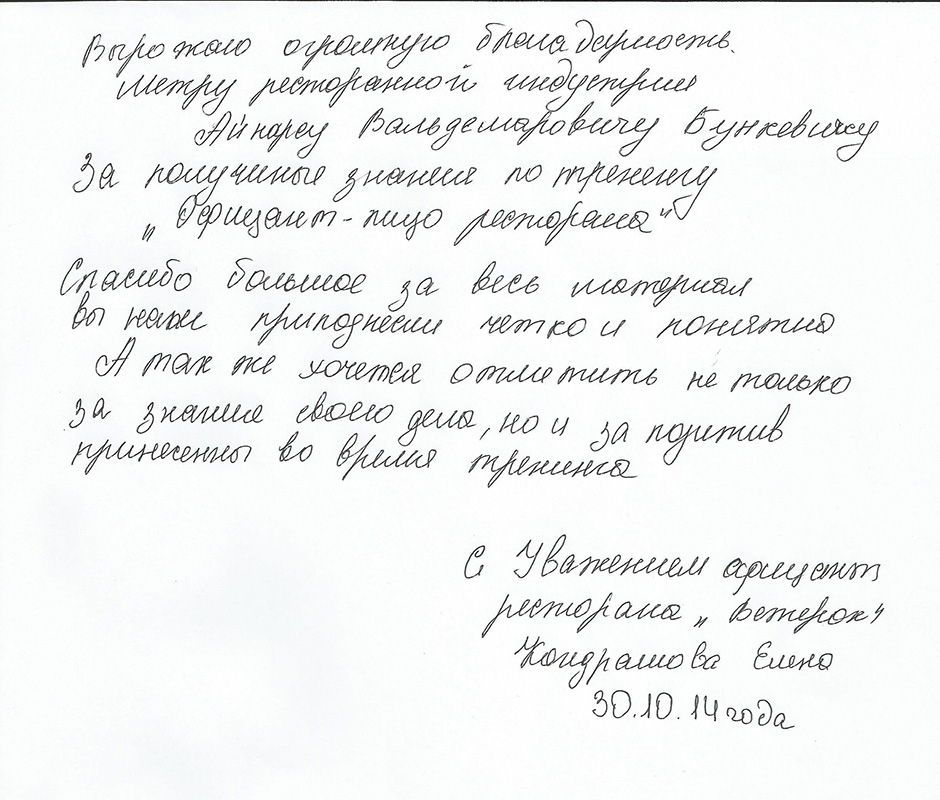 Вырожаю огромную благадарность.
Метру ресторанной индустрии
Айнарсу Вальдемаровичу Бункевичу
За получиные знания по тренингу
„Официант-лицо ресторана"
Спасибо большое за весь материал
вы нам приподнесли четко и понятно
А так же хочется отметить не только
за знания своего дела, но и за позитив
принесенны во время тренинга
С Уважением официант
ресторана „Ветерок"
Кондрашова Елена
30.10.14 года